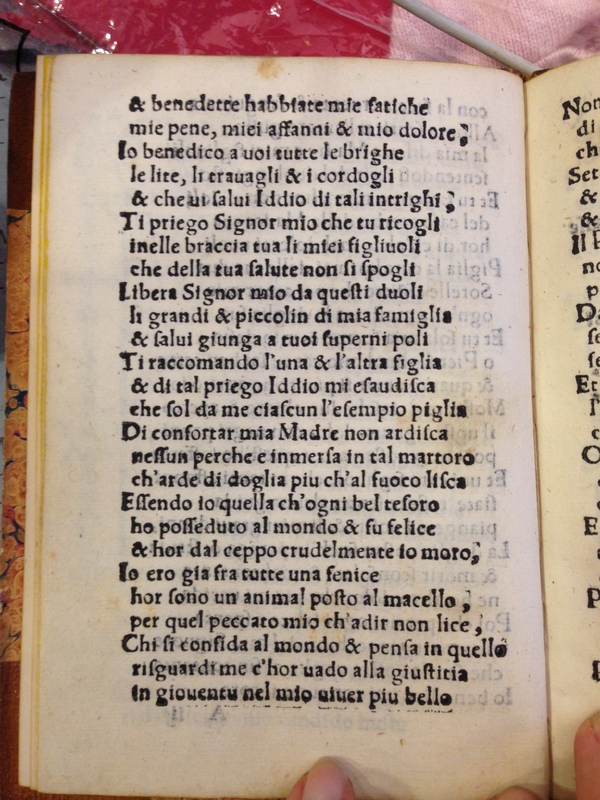 & benedette habbiate mie fatiche
mie pene, miei affanni & mio dolore;
Io benedico a uoi tutte le brighe
le lite, li trauagli & i cordogli
& che ui salui Iddio di tali intrighi;
Ti priego Signor mio che tu ricogli
inelle braccia tua li miei figliuoli
che della tua salute non si spogli
Libera Signor mio da questi duoli
li grandi & piccolin di mia famiglia
& salui giunga a tuoi superni poli
Ti raccomando l'una & l'altra figlia
& di tal priego Iddio mi esaudisca
che sol da me ciascun l'esempio piglia
Di confortar mia Madre non ardisca
nessun perche e inmersa in tal martoro
ch'arde di doglia piu ch'al fuoco lisca
Essendo io quella ch'ogni bel tesoro
ho posseduto al mondo & fu felice
& hor dal ceppo crudelmente io moro;
Io ero gia fra tutte una fenice
hor sono un animal posto al macello;
per quel peccato mio ch'adir non lice;
Chi si confida al mondo & pensa in quello
risguardi me c'hor uado alla giustitia
in giouentu nel mio uiuer piu bello
Non
di
ch
Set
&
&
Il
no
p
Da
se
se
Et
l'
c
O
E
P